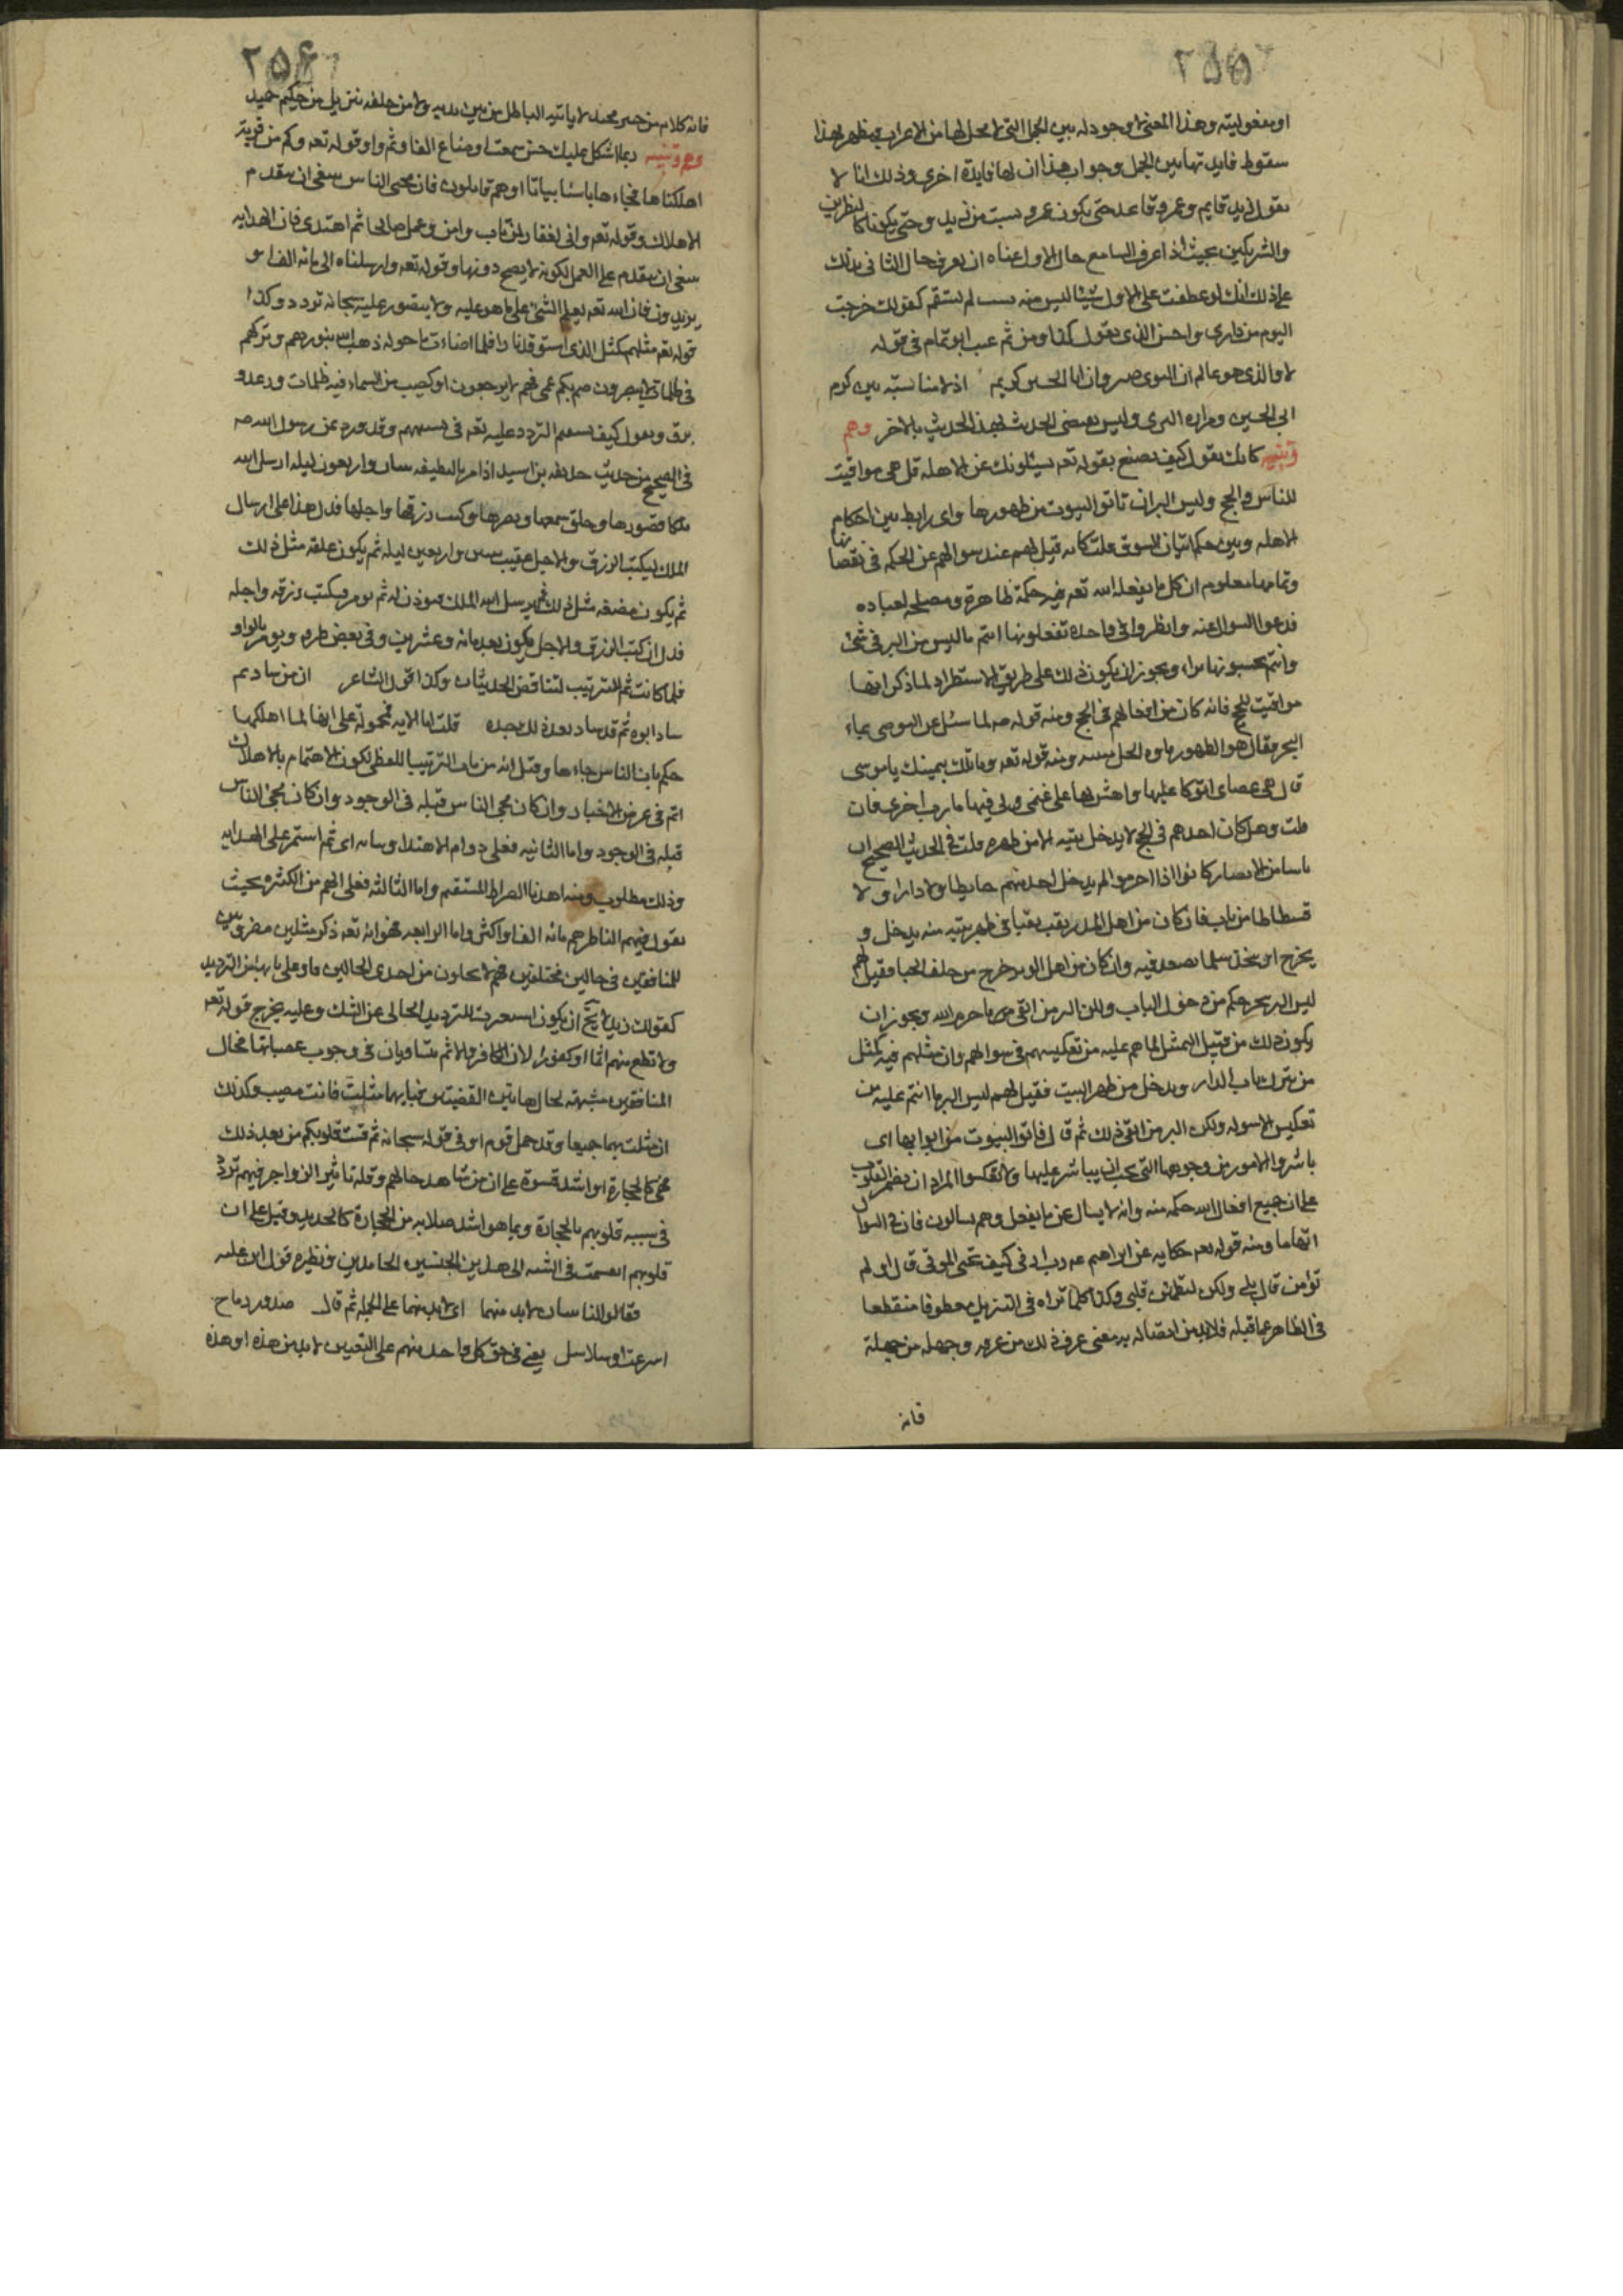 ٢٥٥
او مفعوليته وهذا المعنى لا وجود له بين الجمل التي لا محل لها من الاعراب فيظهر لهذا
سقوط فايدتها بين الجمل وجواب هذا ان لها فايدة اخرى وذلك انا لا
نقول زيد قايم وعمرو قاعد حتى يكون عمرو بسبب من زيد وحتى يكونا كالنظيرين
والشريكين بحيث اذا عرف السامع حال الاول عناه ان يعرف حال الثاني يدلك
على ذلك انك لو عطفت على الاول شيئا ليس منه بسبب لم يستقم كقولك خرجت
اليوم من داري واحسن الذي يقول كذا ومن ثم عيب ابو تمام في قوله
لا والذي هو عالم ان النوى صبر وان ابا الحسين كريم اذ لا مناسبة بين كرم
ابي الحسين ومرارة النوى وليس يقتضي الحديث بهذا الحديث بالاخر وهم
وتنبيه كانك تقول كيف نصنع بقوله تعه يسئلونك عن الاهلة قل هي مواقيت
للناس والحج وليس البر ان تاتوا البيوت من ظهورها واي رابط بين احكام
الاهله وبين حكم اتيان البيوت قلت كانه قيل لهم عند سوالهم عن الحكمه في نقصانها
وتمامها معلوم ان كل ما يفعله الله تعه فيه حكمة ظاهرة ومصلحة لعباده
فدعوا السوال عنه وانظروا في واحدة تفعلونها انتم مما ليس من البر في شئ
وانتم تحسبونها برا ويجوز ان يكون ذلك على طريق الاستطراد لما ذكر انها
مواقيت للحج فانه كان من افعالهم في الحج ومنه قوله صه لما سئل عن التوضى بماء
البحر فقال هو الطهور ماوه الحل ميتته ومنه قوله تعه وما تلك بيمينك ياموسى
قال هي عصاى اتوكا عليها واهش بها على غنمى ولى فيها مارب اخرى فان
قلت وهل كان احدهم في الحج لا يدخل بيته الا من ظهره قلت في الحديث الصحيح ان
ناسا من الانصار كانوا اذا احرموا لم يدخل احد منهم حايطا ولا دارا ولا
فسطاطا من باب فان كان من اهل المدر نقب نقبا في ظهر بيته منه يدخل و
يخرج او يتخذ سلما يصعد فيه وان كان من اهل الوبر خرج من خلف الخبا فقيل لهم
ليس البر بتحرجكم من دخول الباب ولكن البر من اتقى ما حرم الله ويجوز ان
يكون ذلك من قبيل التمثيل لما هم عليه من تعكيسهم في سوالهم وان مثلهم فيه كمثل
من يترك باب الدار ويدخل من ظهر البيت فقيل لهم ليس البر ما انتم عليه من
تعكيس الاسوله ولكن البر من اتقى ذلك ثم قال فاتوا البيوت من ابوابها اى
باشروا الامور من وجوهها التي يجب ان يباشر عليها ولا تعكسوا المراد ان يضمر القلوب
على ان جميع افعال الله حكمه منه وانه لا يسال عن ما يفعل وهم يسالون فان في السوال
اتهاما ومنه قوله تعه حكاية عن ابراهيم عه رب ارنى كيف تحيى الموتى قال او لم
تؤمن قال بلى ولكن ليطمئن قلبى وكذا كلما تراه في التنزيل معطوفا منقطعا
في الظاهر عما قبله فلا بد من اتصاله به معنى عرف ذلك من عرفه وجهله من جهله
فانه
٢٥٦
فانه كلام من خبير مجيد لا ياتيه الباطل من بين يديه ولا من خلفه تنزيل من حكيم حميد
وهم وتنبيه ربما اشكل عليك حين سمعت اوضاع الفا وثم واو قوله تعه وكم من قرية
اهلكناها فجاءها باسنا بياتا او هم قايلون فان مجى الباس ينبغى ان يتقدم
الاهلاك وقوله تعه وانى لغفار لمن تاب وامن وعمل صالحا ثم اهتدى فان الهدايه
ينبغى ان يتقدم على العمل لكونه لا يصح دونها وقوله تعه وارسلناه الى مائه الف او
يزيدون فان الله تعه يعلم الشئ على ما هو عليه ولا يتصور عليه سبحانه تردد وكذا
قوله تعه مثلهم كمثل الذى استوقد نارا فلما اضاءت ما حوله ذهب الله بنورهم وتركهم
في ظلمات لا يبصرون صم بكم عمى فهم لا يرجعون او كصيب من السماء فيه ظلمات ورعد و
برق وتقول كيف يستقيم التردد عليه تعه في تشبيههم وقد ورد عن رسول الله صه
في الصحيح من حديث حذيفه بن اسيد اذا مر بالنطفه ثنتان واربعون ليله ارسل الله
ملكا فصورها وخلق سمعها وبصرها وكتب رزقها واجلها فدل هذا على ارسال
الملك ليكتب الرزق والاجل عقيب ثنتين واربعين ليله ثم يكون علقة مثل ذلك
ثم يكون مضغه مثل ذلك ثم يرسل الله الملك فيوذن له ثم يومر فيكتب رزقه واجله
فدل ان كتب الرزق والاجل يكون بعد مائه وعشرين وفي بعض طرقه ويومر بالواو
فلما كانت ثم للترتيب لتناقض الحديثان وكذا قول الشاعر ان من ساد ثم
ساد ابوه ثم قد ساد بعد ذلك جده قلت اما الايه فمحموله على انها لما اهلكها
حكم بان الباس جاءها وقيل انه من باب الترتيب اللفظى لكون الاهتمام بالاهلاك
اتم في عرض الاخبار وان كان مجى الباس قبله في الوجود وان كان مجى الباس
قبله في الوجود واما الثانيه فعلى دوام الاهتداء وثباته اى ثم استمر على الهدايه
وذلك مطلوب ومنه اهدنا الصراط المستقيم واما الثالثه فعلى انهم من الكثرة بحيث
يقول فيهم الناظر هم مائه الف او اكثر واما الرابعه فهو انه تعه ذكر مثلين مضروبين
للمنافقين في حالين مختلفين فهم لا يخلون من احدى الحالين فاو على بابها من الترديد
كقولك زيد لا يخ ان يكون استعيرت للترديد الخالى عن الشك وعليه يخرج قوله تعه
ولا تطع منهم اثما او كفورا لان الكافر والاثم متساويان في وجوب عصيانهما فحال
المنافقين مشبهة لحال هاتين القضيتين فبايهما مثلت فانت مصيب وكذلك
ان مثلت بهما جميعا وقد حمل قوم او في قوله سبحانه ثم قست قلوبكم من بعد ذلك
فهى كالحجارة او اشد قسوة على ان من شاهد حالهم وقلة تاثير الزواجر فيهم تردد
في تشبيه قلوبهم بالحجارة وبما هو اشد صلابه من الحجارة كالحديد وقيل على ان
قلوبهم انقسمت في الشبه الى هذين الجنسين الجامدين ونظيره قول ابن علبه
فقالوا لنا ثنتان لا بد منهما اى لابد منهما على الجمله ثم قال صدور رماح
اسرعت او سلاسل يعنى في حق كل واحد منهم على التعيين لا بد من هذه او هذه